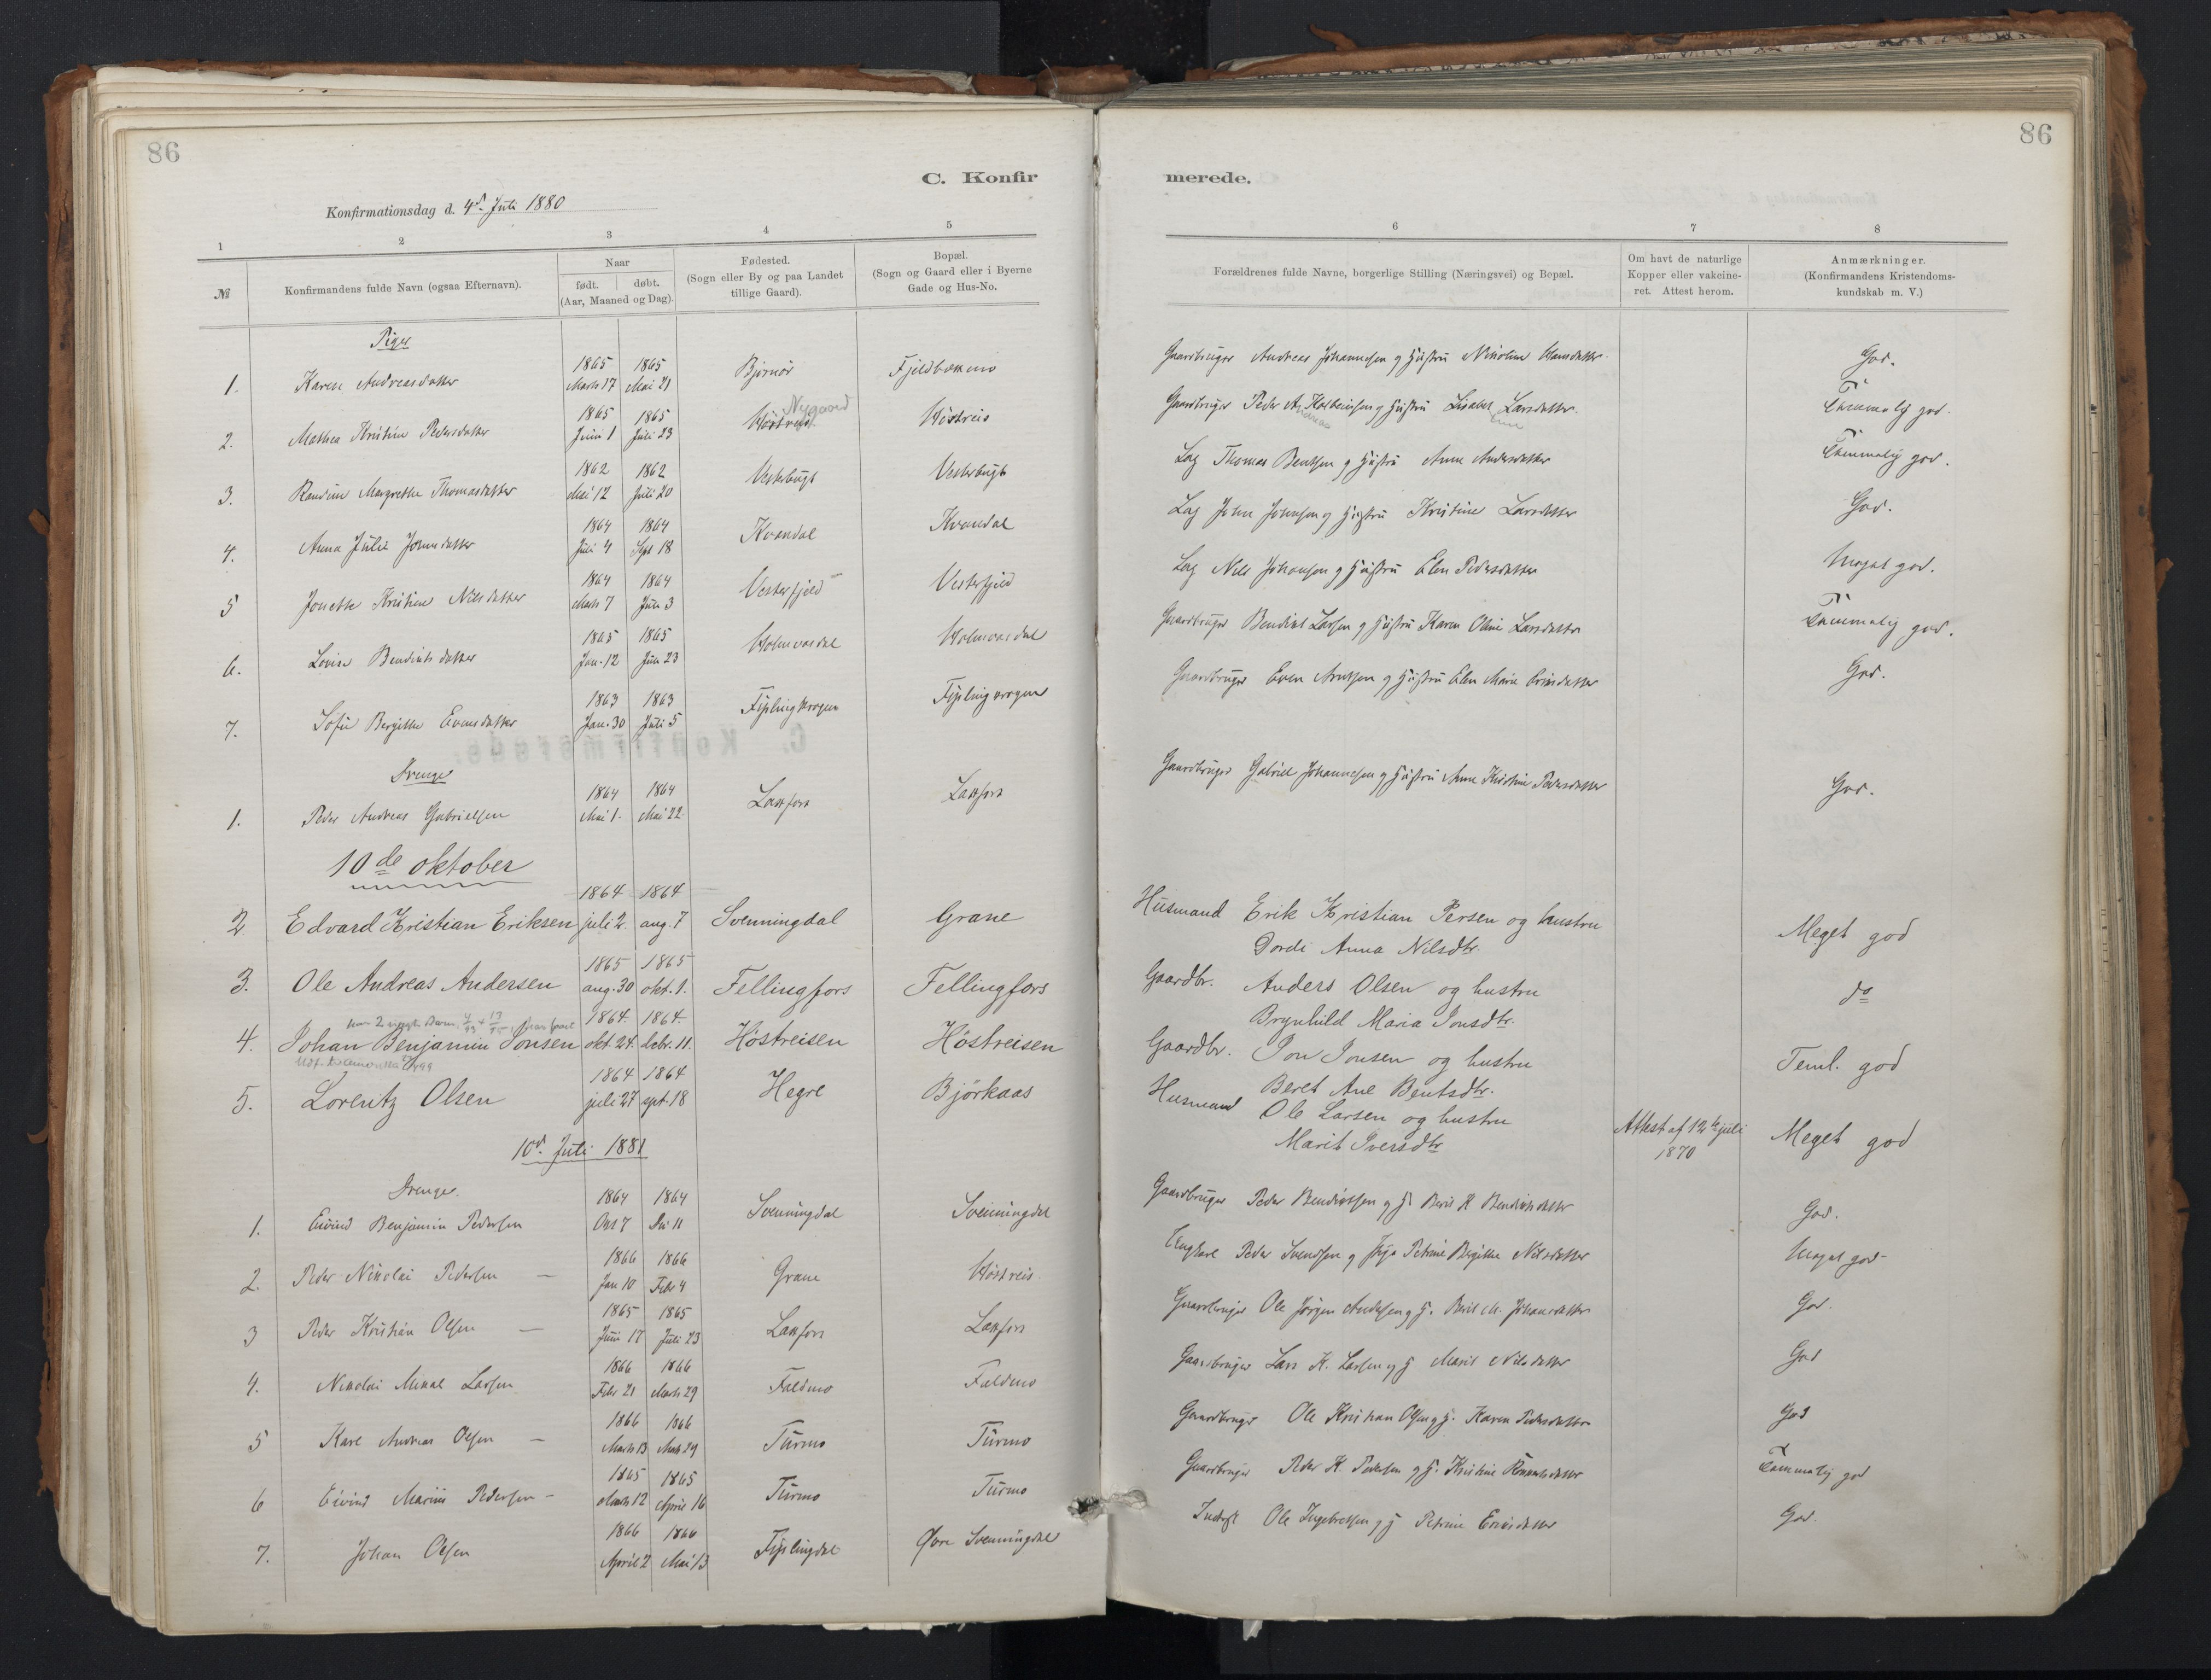 86
86
C. Konfir
merede.
Konfirmationsdag d. 4d. Juli 1880
1 2 3 4 5 6 7 8
№
Konfirmandens fulde Navn (ogsaa Efternavn).
Naar
født. døbt.
(Aar, Maaned og Dag).
Fødested.
(Sogn eller By og paa Landet
tillige Gaard).
Bopæl.
(Sogn og Gaard eller i Byerne
Gade og Hus-No.
Forældrenes fulde Navne, borgerlige Stilling (Næringsvei) og Bopæl.
Om havt de naturlige
Kopper eller vakcine-
ret. Attest herom.
Anmærkninger.
(Konfirmandens Kristendoms-
kundskab m. V.)
Piger
1865 1865
1. Karen Andreasdatter Marts 17 Mai 21 Bjørnør Gaardbruger Andreas Johannesen og Hustru Nikoline Hansdatter God.
1865 1865 Nygaard
2. Mathea Kristine Pedersdatter Juni 1 Juli 23 Høstreis Høstreis Gaardbruger Peder A. og Hustru Lisabet Larsdatter. Temmelig god.
1862 1862
3. Randine Margrethe Thomasdatter Mai 12 Juli 20 Vesterbugt Vesterbugt Log Thomas Bentsen og Hustru Anne Andersdatter Temmelig god.
1864 1864
4. Anna Julie Johnsdatter Juli 4 Sept 18 Kvandal Kvandal Log John Johnsen og Hustru Kristine Larsdatter God.
1864 1864
5 Jonette Kristine Nilsdatter Marts 7 Juli 3 Vesterfjeld Vesterfjeld Log Nils Johansen og Hustru Elen Pedersdatter Meget god.
1865 1865
6. Lovise Bendiktsdatter Jan. 12 Juli 23 Holmvasdal Holmvasdal Gaardbruger Bendikt Larsen og Hustru Karen Oline Larsdatter Temmelig god.
1863 1863
7. Sofie Bergitte Evensdatter Jan. 30 Juli 5 Fiplingkrogen Fiplingkrogen Gaardbruger Even Arntsen og Hustru Elen Marie God.
Drenge
1864 1864
1. Peder Andreas Gabrielsen Mai 1. Mai 22. Laxfors Laxfors Gaardbruger Gabriel Johannesen og Hustru Anne Kristine Pedersdatter God.
10de oktober
1864 1864
2 Edvard Kristian Eriksen juli 2. aug. 7 Svenningdal Grane Husmand Erik Kristian Persen og hustru Meget god
Dordi Anna Nilsdtr.
1865 1865
3. Ole Andreas Andersen aug. 30 okt. 1. Fellingfors Fellingfors Gaardbr. Anders Olsen og hustru do
Brynhild Maria Jonsdtr.
1864. 1864.
4. Johan Benjamin Jonsen okt. 24. decbr. 11. Høstreisen Høstreisen Gaardbr. Jon Jonsen og hustru Teml. god
Beret Ane Bentsdtr.
1864 1864
5. Lorentz Olsen juli 27 spt. 18 Hegre Bjørkaas Husmand Ole Larsen og hustru Attest af 12te juli Meget god
Marit Iversdtr 1870
10d. Juli 1881
Drenge.
1864 1864
1. Eivind Benjamin Pedersen Okt 7 De 11 Svenningdal Svenningdal Gaardbruger Peder Bendiktsen og H. Berit K Bendiktsdatter God.
1866 1866
2. Peder Nikolai Pedersen — Jan 10 Febr 4 Grane Høstreis Ungkarl Peder Svendsen og Pige Petrine Bergitte Nilsdatter Meget god
1865 1865
3 Peder Kristian Olsen — Juni 17 Juli 23 Laxfors Laxfors Gaardbruger Ole Jørgen Andersen og H. Berit M. Johansdatter God.
1866 1866
4. Nikolai Mikal Larsen Febr 21 Marts 29 Faldmo Faldmo Gaardbruger Lars K. Larsen og H Marit Nilsdatter God
1866 1866
5 Karl Andreas Olsen — Marts 13 Marts 29 Turmo Turmo Gaardbruger Ole Kristian Olsen og H. Karen Pedersdatter God
1865 1865
6 Eivind Marius Pedersen — Marts 12 April 16 Turmo Turmo Gaardbruger Peder K. Pedersen og H. Kristine Temmelig god
1866 1866
7. Johan Olsen April 2 Mai 13 Fiplingdal Øvre Svenningdal Inderst Ole Ingebretsen og H Petrine God.